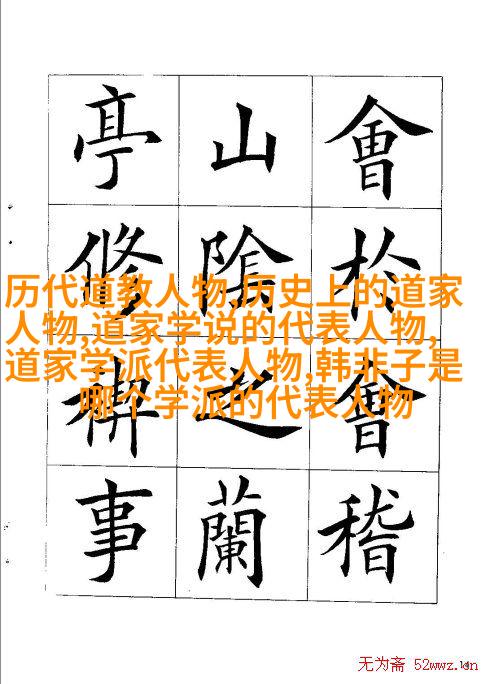 會於會稽
山陰之蘭
亭修禊事
历代道教人物,历史上的道家
人物,道家学说的代表人物,
道家学派代表人物,韩非子是
哪个学派的代表人物
无为斋 52wwz.cn